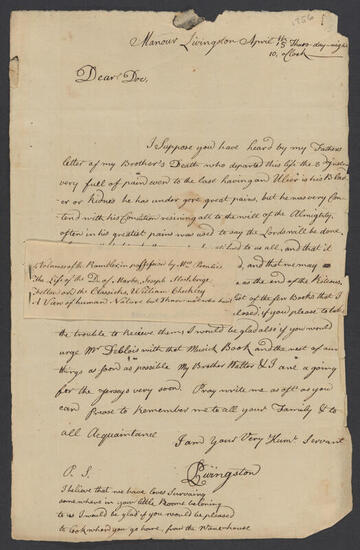 1756
Manour Livingston April 15th Thursday night
10, oClock
Dear Doc,
I Suppose you have heard by my Fathers
letter of my Brother's Death who departed this life the 8 Instant
very full of pain even to the last having and Ulier is his Blad-
er or Kidnes he has under gone great pains, but he was very Con-
tend with his Condition resining all to the will of the Almighty,
often in his greatest pains was used to say the Lords will be done,
to us all, and that it
and, and that we may
as the end of the
last of the few Books that I
closed; if you please to take
the Life of the D. of Marbo. Joseph
the Classicks, & William
A View of human Nature but
the trouble to Recieve them I would be glad also if you would
urge Mr Deblois with that Musick Book and the rest of our
things as soon as possible My Brother Walter & I are a going
for the Jerseys very soon. Pray write me as oft as you
can Prove to Remember me to all your Family & to
all Acquaintance
I am Your Very Hum. Servant
Livingston
P. S.
I believe that we have loves Survaing
somewhere in your little Roome beloning
to us I would be glad if you would be pleased
to look when you go have, from the Warehouse